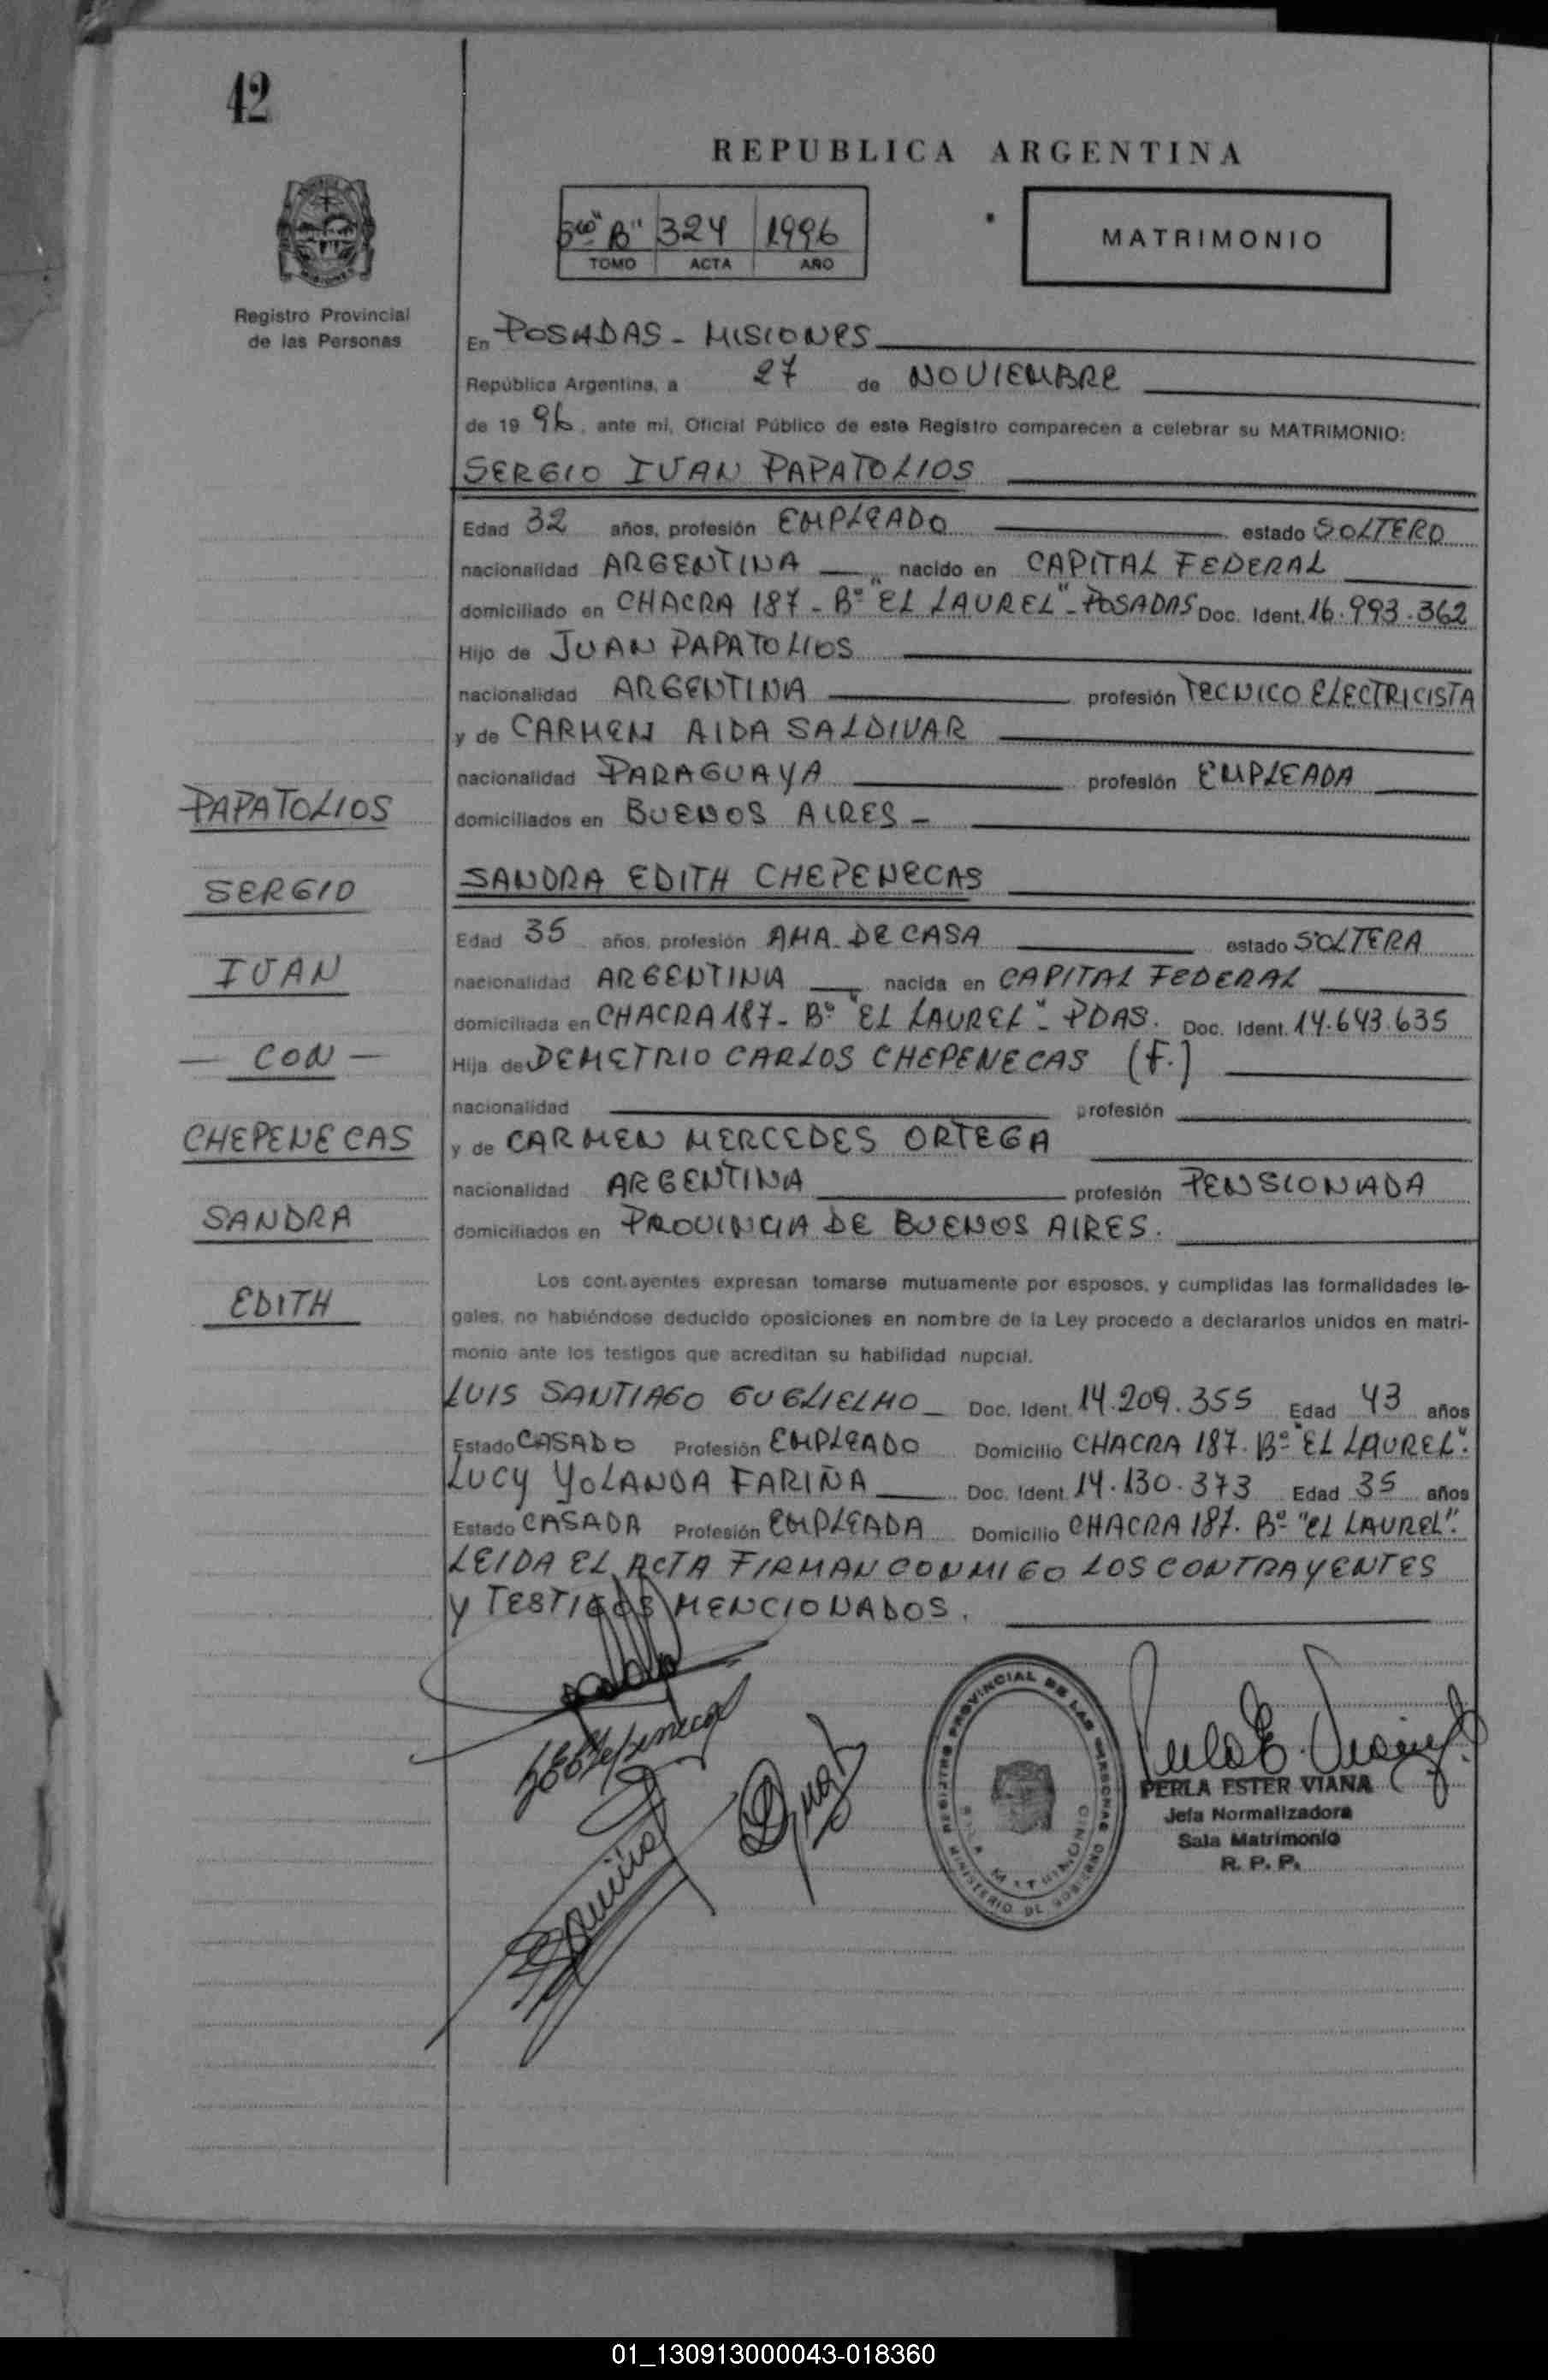 42
REPUBLICA ARGENTINA
"B" 324 1996
TOMO ACTA AÑO
MATRIMONIO
Registro Provincial
de las Personas
En POSADAS - MISIONES
República Argentina, a 27 de NOVIEMBRE
de 19 96, ante mi, Oficial Público de este Registro comparecen a celebrar su MATRIMONIO:
SERGIO IVAN PAPATOLIOS
Edad 32 años, profesión EMPLEADO estado SOLTERO
nacionalidad ARGENTINA nacido en CAPITAL FEDERAL
domiciliado en CHACRA 187 - Bº "EL LAUREL" - POSADAS Doc. Ident. 16.993.362
Hijo de JUAN PAPATOLIOS
nacionalidad ARGENTINA profesión TECNICO ELECTRICISTA
y de CARMEN AIDA SALDIVAR
nacionalidad PARAGUAYA profesión EMPLEADA
domiciliados en BUENOS AIRES -
SANDRA EDITH CHEPENECAS
Edad 35 años, profesión AMA DE CASA estado SOLTERA
nacionalidad ARGENTINA nacida en CAPITAL FEDERAL
domiciliada en CHACRA 187 - Bº "EL LAUREL" - PDAS. Doc. Ident. 14.643.635
Hija de DEMETRIO CARLOS CHEPENECAS (F.)
nacionalidad profesión
y de CARMEN MERCEDES ORTEGA
nacionalidad ARGENTINA profesión PENSIONADA
domiciliados en PROVINCIA DE BUENOS AIRES.
PAPATOLIOS
SERGIO
IVAN
- CON -
CHEPENECAS
SANDRA
EDITH
Los cont.ayentes expresan tomarse mutuamente por esposos, y cumplidas las formalidades le-
gales, no habiéndose deducido oposiciones en nombre de la Ley procedo a declararlos unidos en matri-
monio ante los testigos que acreditan su habilidad nupcial.
LUIS SANTIAGO GUGLIELMO - Doc. Ident. 14.209.355 Edad 43 años
Estado CASADO Profesión EMPLEADO Domicilio CHACRA 187. Bº "EL LAUREL".
LUCY YOLANDA FARIÑA Doc. Ident. 14.130.373 Edad 35 años
Estado CASADA Profesión EMPLEADA Domicilio CHACRA 187. Bº "EL LAUREL".
LEIDA EL ACTA FIRMAN CONMIGO LOS CONTRAYENTES
Y TESTIGOS MENCIONADOS.
REGISTRO PROVINCIAL DE LAS PERSONAS
SALA MATRIMONIO
MINISTERIO DE GOBIERNO
PERLA ESTER VIANA
Jefa Normalizadora
Sala Matrimonio
R. P. P.
01_130913000043-018360